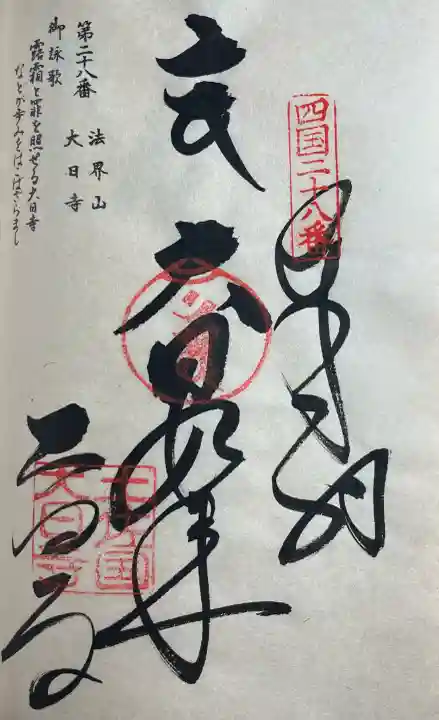 四国二十八番
奉納
大日如来
大日寺
土佐国
大日寺
第二十八番 法界山
大日寺
御詠歌
露霜と罪を照せる大日寺
などか歩みをはこばざらまし